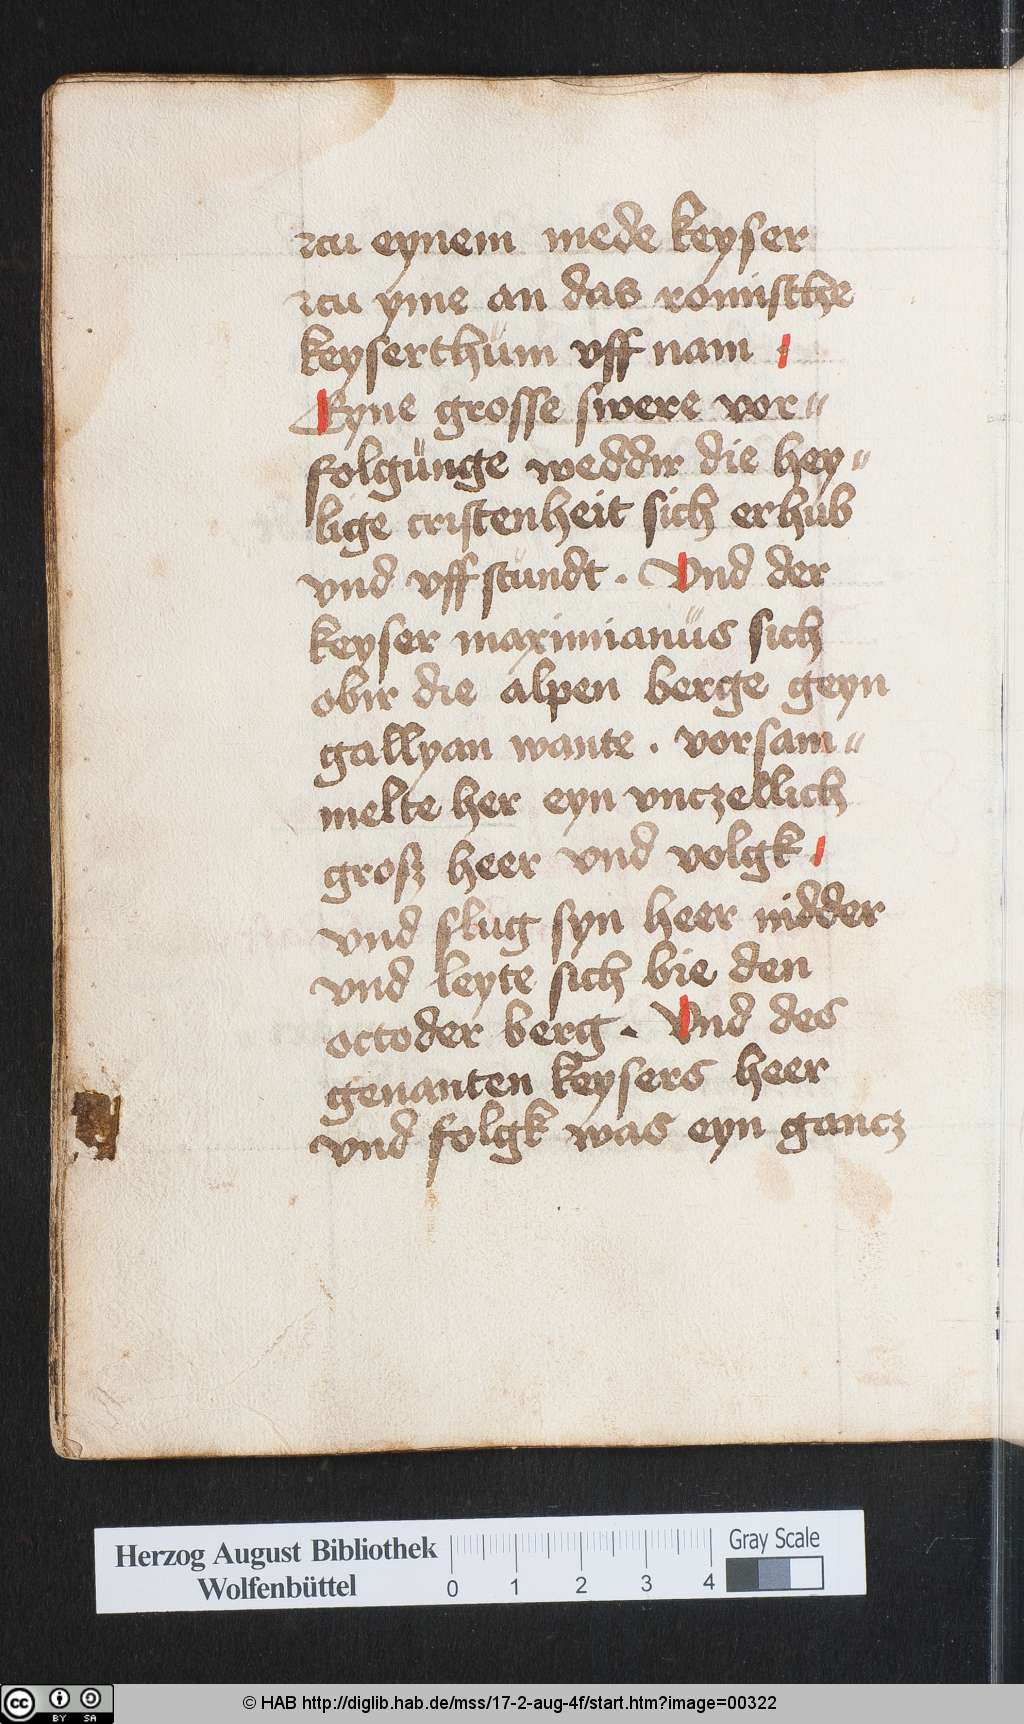 zcu eynem mede keyser
zcu yme an das romissche
keyserthüm vff nam
Eyne grosse swere vor⸗
folgünge weddir die hey⸗
lige cristenheit sich erhub
vnd vff stundt . Vnd der
keyser maximianüs sich
obir die alpen berge geyn
gallyan wante . vorsam⸗
melte her eyn vnczellich
grosz heer vnd volgk
vnd slug syn heer nidder
vnd leyte sich bie den
octoder berg . Vnd des
genanten keysers heer
vnd folgk was eyn gancz
Herzog August Bibliothek
Wolfenbüttel
0 1 2 3 4
Gray Scale
cc BY SA
© HAB http://diglib.hab.de/mss/17-2-aug-4f/start.htm?image=00322